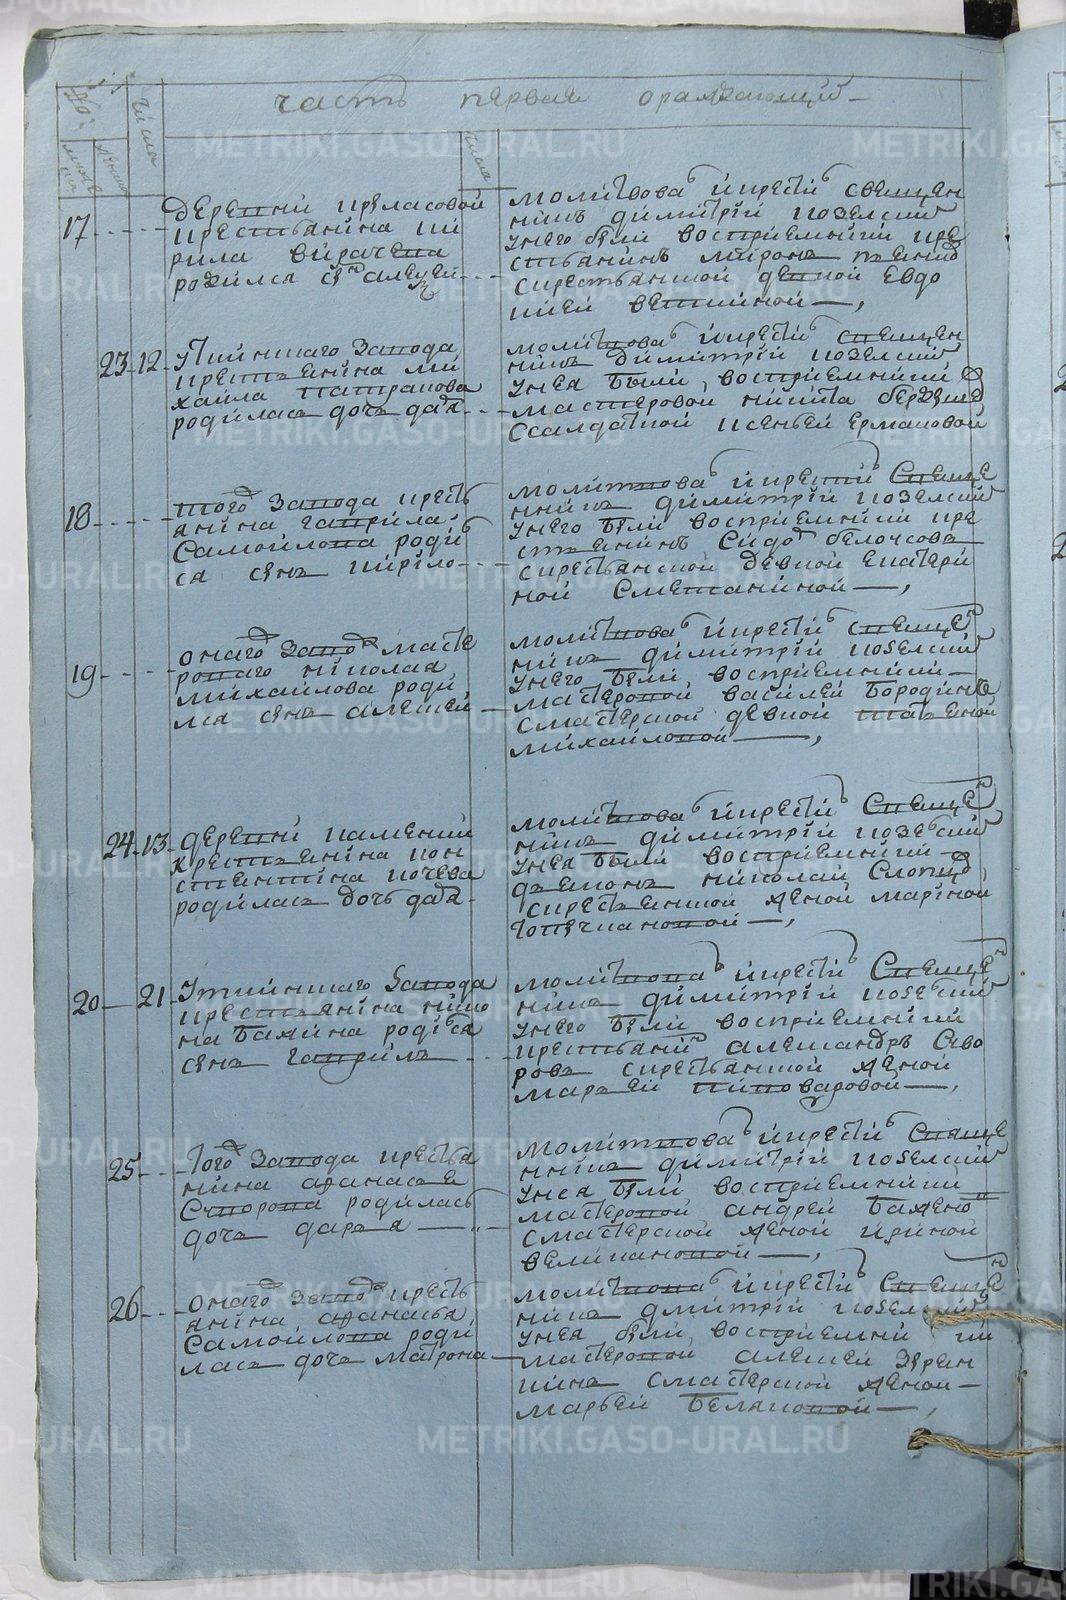 часть первая ораждающий
17
деревни
крестьянина ки
рила
родился сынъ алексей
молитвова и крести свещен
никъ димитрїй поземский
унего были восприемники кре
стьянинъ миронъ
скрестьянской девкой евдо
кией вешкиной
23 12
уткинскаго завода
крестьянина ми
хаила патракова
родилась дочь дарья
молитвова и крести свещен
никъ димитрїй поземский
унея были восприемники
мастеровой никита
ссалдаткой ксеньей ермаковой
18
того завода кресть
янина гаврила
самойлова роди
ся сынъ кирило
молитвова и крести свеще
нникъ димитрїй поземский
унего были восприемники кре
стьянинъ сидо
скрестьянской девкой екатери
ной сметаниной
19
онаго завод масте
роваго николая
михайлова роди
лся сынъ алексей
молитвова и крести свеще
никъ димитрїй поземский
унего были восприемники
мастеровой василей бородинъ
смастерской девкой татьяной
михайловой
24 13
деревни каменки
крестьянина кон
стентина
родилась дочь дарья
молитвова и крести свеще
никъ димитрїй поземский
унея были восприемники
дьяконъ николай словцо
скрестьянской женой мариной
20 21
уткинскаго завода
крестьянина нико
на бажина родися
сынъ гаврилъ
молитвова и крести свеще
никъ димитрїй поземский
унего были восприемники
крестьяни александръ суво
ровъ скрестьянской женой
марьей пивоваровой
25
того завода крестья
нина афанасье
суворова родилась
дочь дарья
молитвова и крести свяще
нникъ димитрїй поземский
унея были восприемники
мастеровой андрей бажено
смастерской женой ириной
великановой
26
онаго завод кресть
янина афанасья
самойлова роди
лась дочь матрона
молитвова и крести свеще
никъ дмитрїй поземский
унея были восприемники
мастеровой алексей зерен
кинъ смастерской женой
марьей беляковой
METRIKI.GASO-URAL.RU